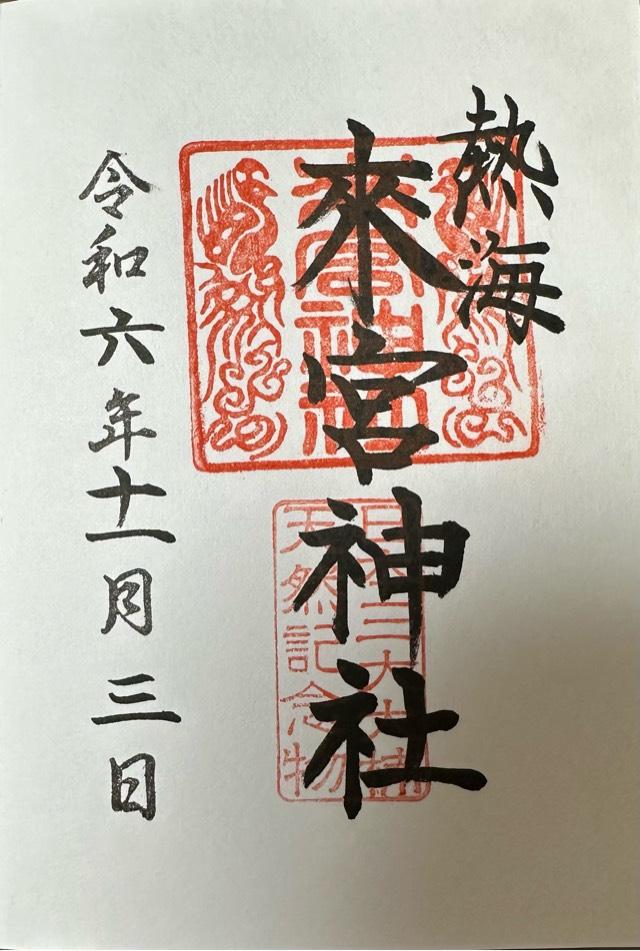 熱海
來宮神社
來宮神社
日本三大大楠
天然記念物
令和六年十一月三日